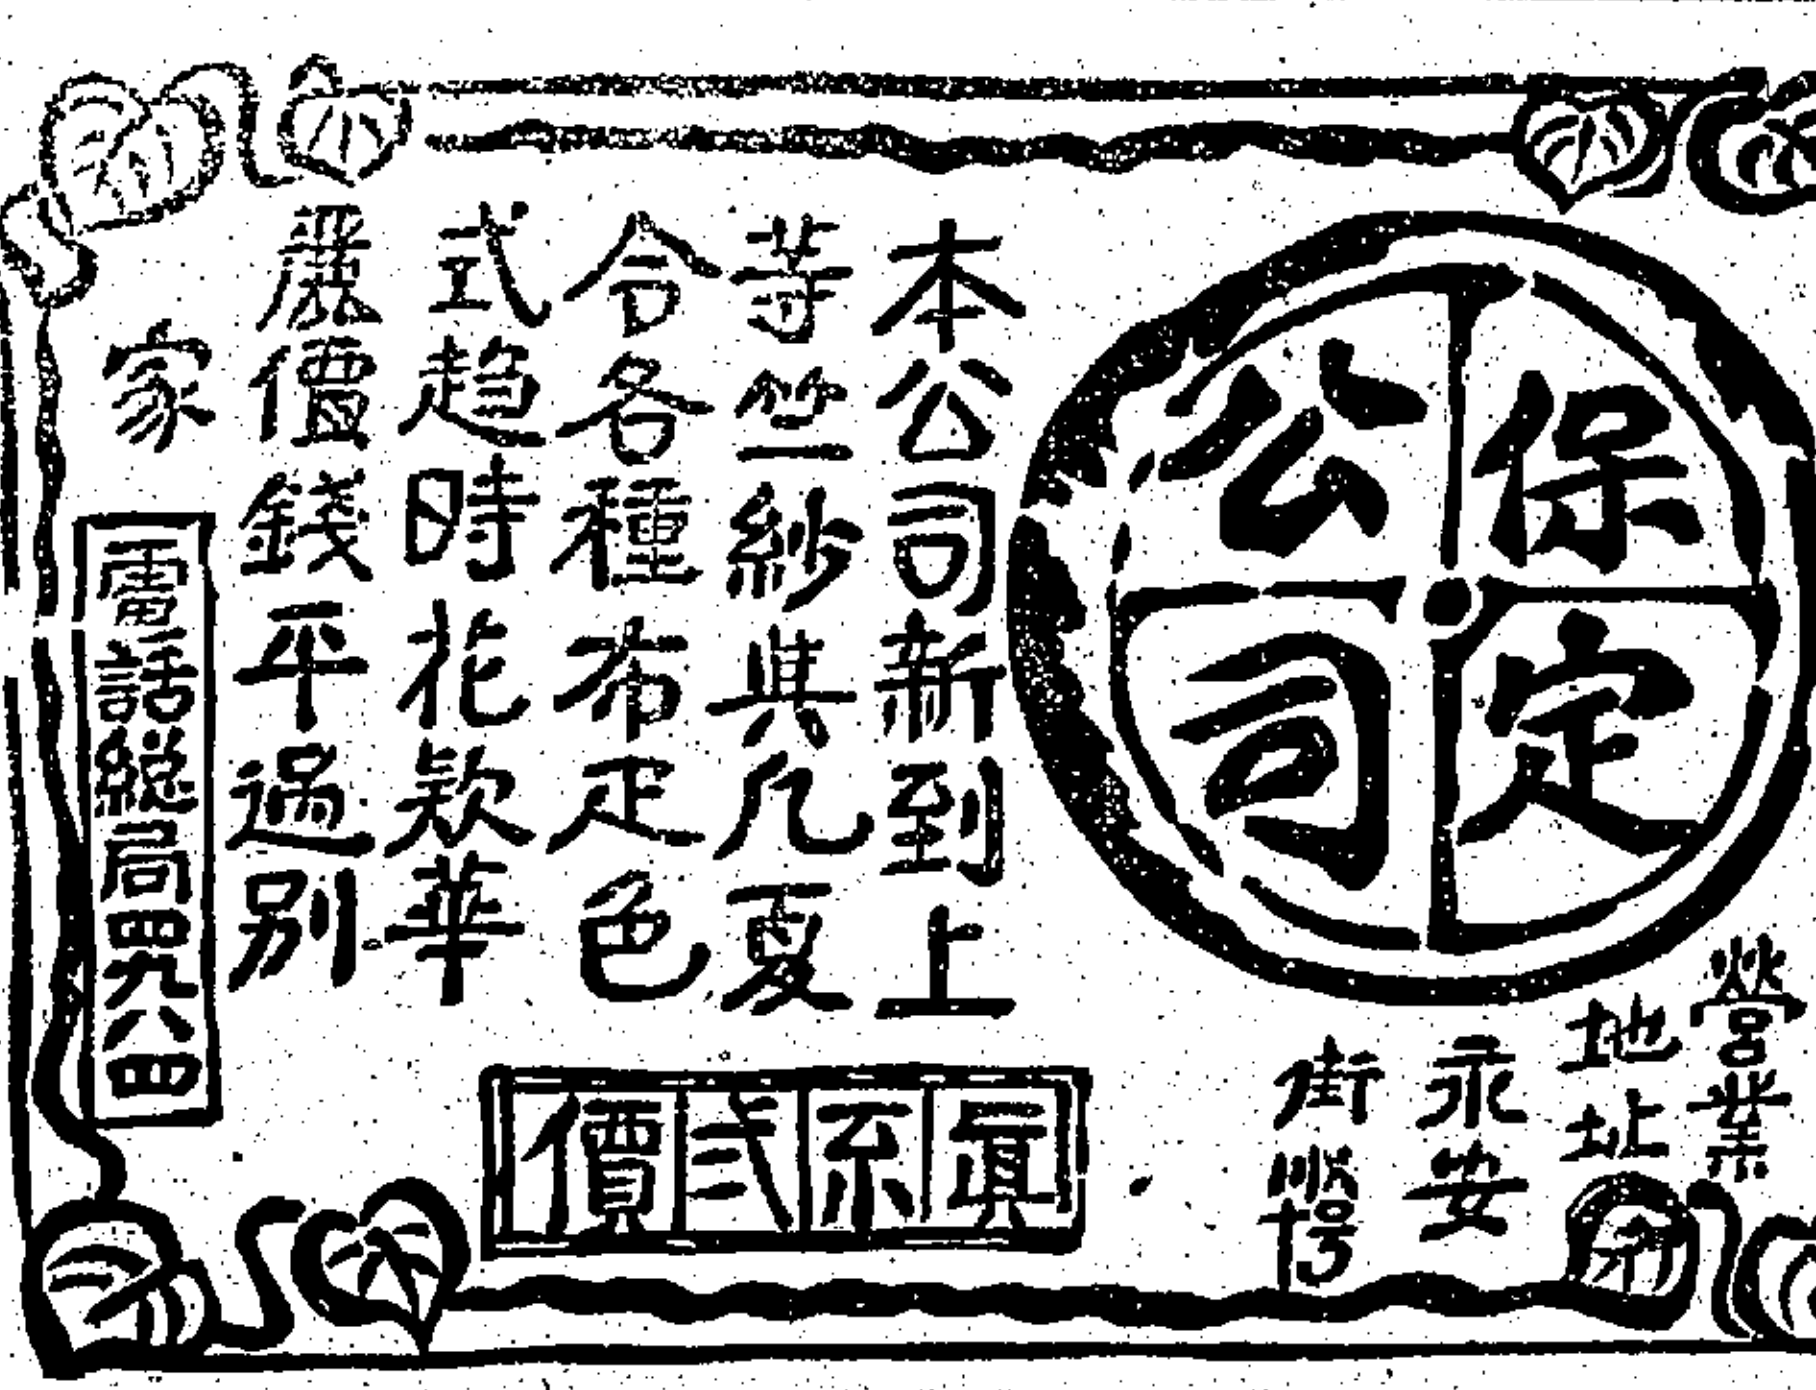 保定
公司
營業
地址
永安
街
十号
本公司新到上
等竺紗與凡夏
令各種布疋色
式趋時花款華
麗價錢平過別
家
真不弍價
電話總局四九八四